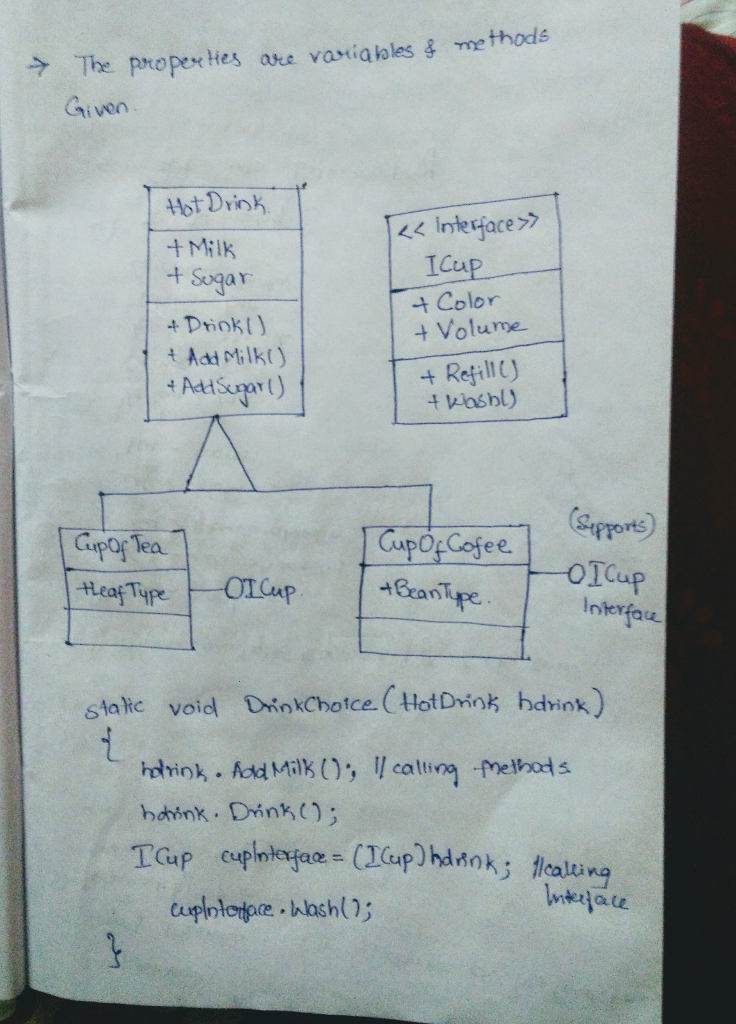 → The properties are variables & methods
Given.
HotDrink
+ Milk
+ Sugar
+ Drink()
+ AddMilk()
+ AddSugar()
<< Interface >>
ICup
+ Color
+ Volume
+ Refill()
+ Wash()
CupOfTea
+LeafType
OICup.
CupOfCofee
+BeanType.
(Supports)
OICup
Interface
static void DrinkChoice (HotDrink hdrink)
{
hdrink. AddMilk(); // calling methods
hdrink. Drink();
ICup cupInterface = (ICup) hdrink; //calling
Interface
cupInterface. Wash();
}